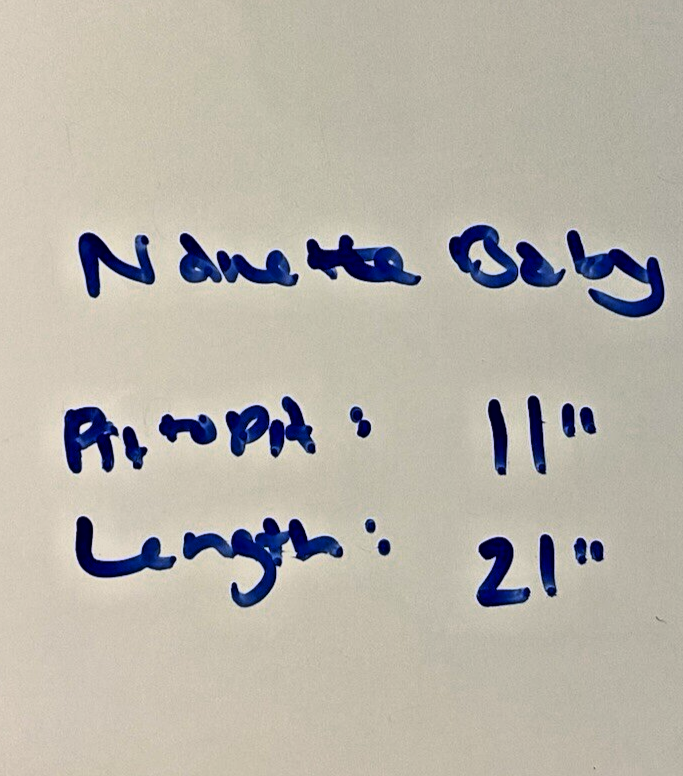 Nanette Baby
Pit to Pit: 11"
Length: 21"